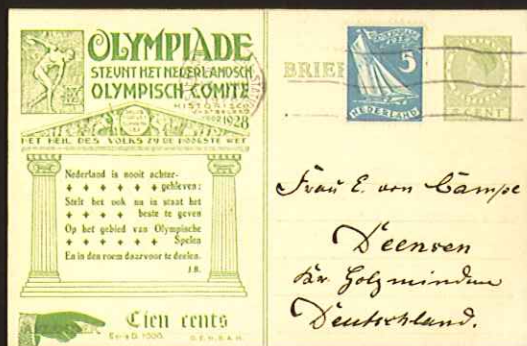 OLYMPIADE
STEUNT HET NEDERLANDSCH
OLYMPISCH COMITÉ
HISTORISCH
1928
HET HEIL DES VOLKS ZY DE HOOGSTE WET
Nederland is nooit achter-
gebleven:
Stelt het ook nu in staat het
beste te geven
Op het gebied van Olympische
Spelen
En in den roem daarvoor te deelen.
J.B.
Tien cents
BRIEF
5
NEDERLAND
CENT
Frau E. von Campe
Deensen
Kr. Holzminden
Deutschland.